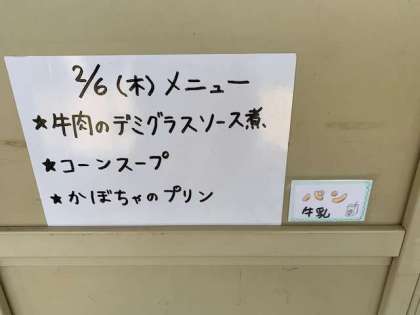 2/6 (木) メニュー
★牛肉のデミグラスソース煮、
★コーンスープ
★かぼちゃのプリン
パン
牛乳